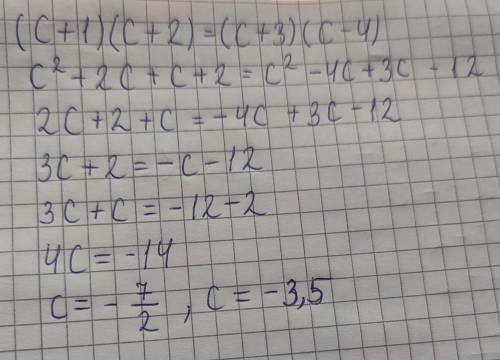 (C+1)(C+2)=(C+3)(C-4)
C²+2C+C+2=C²-4C+3C-12
2C+2+C=-4C+3C-12
3C+2=-C-12
3C+C=-12-2
4C=-14
C=-7/2, C=-3,5